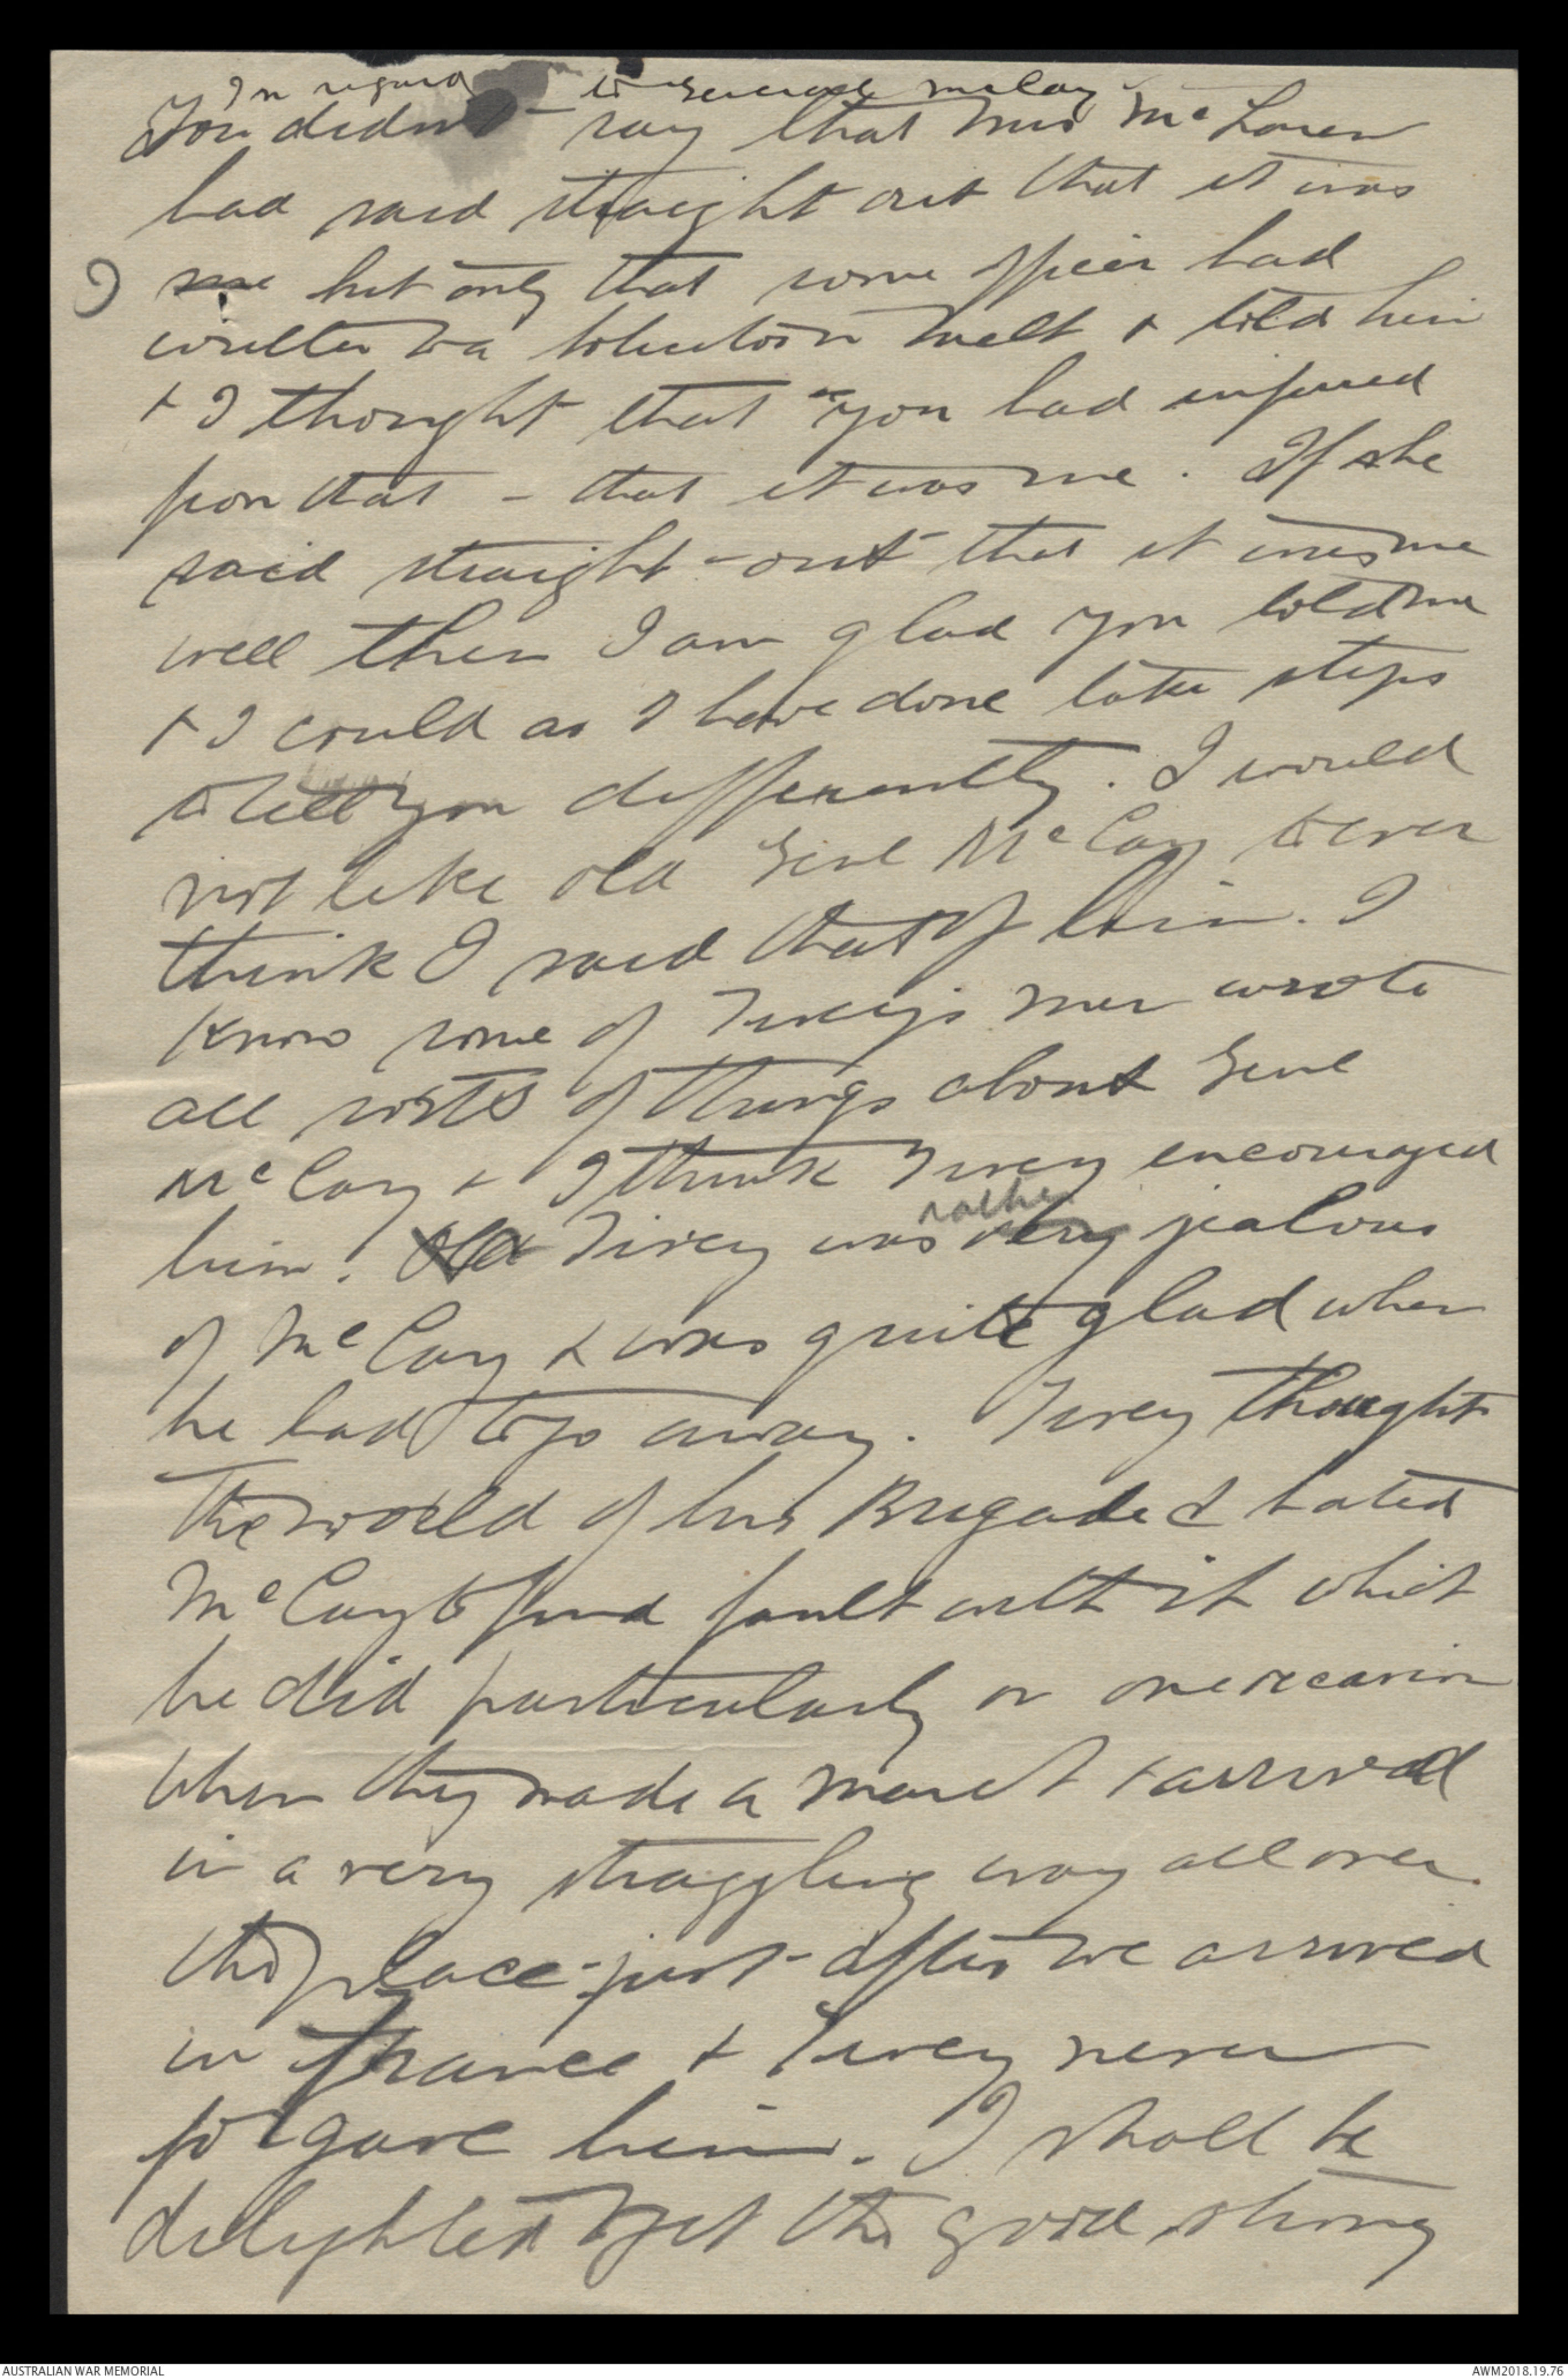 In regard to General McCay
You didn't say that Mrs McLaren
had said straight out that it was
me but only that some officer had
written to a solicitor in Melb & told him
& I thought that you had inferred
from that - that it was me. If she
said straight-out that it was me
well then I am glad you told me
& I could as I have done take steps
to tell you differently. I would
not like old Genl McCay to ever
think I said that of him. I
know some of Tivey's men wrote
all sorts of things about Genl
McCay & I think Tivey encouraged
him. Old Tivey was very rather jealous
of McCay & was quite glad when
he had to go away. Tivey thought
the world of his Brigade & hated
McCay to find fault with it which
he did particularly on one occasion
when they made a march & arrived
in a very straggling way all over
the place - just - after we arrived
in France & Tivey never
forgave him. I shall be
delighted to get the good strong
AUSTRALIAN WAR MEMORIAL
AWM2018.19.76